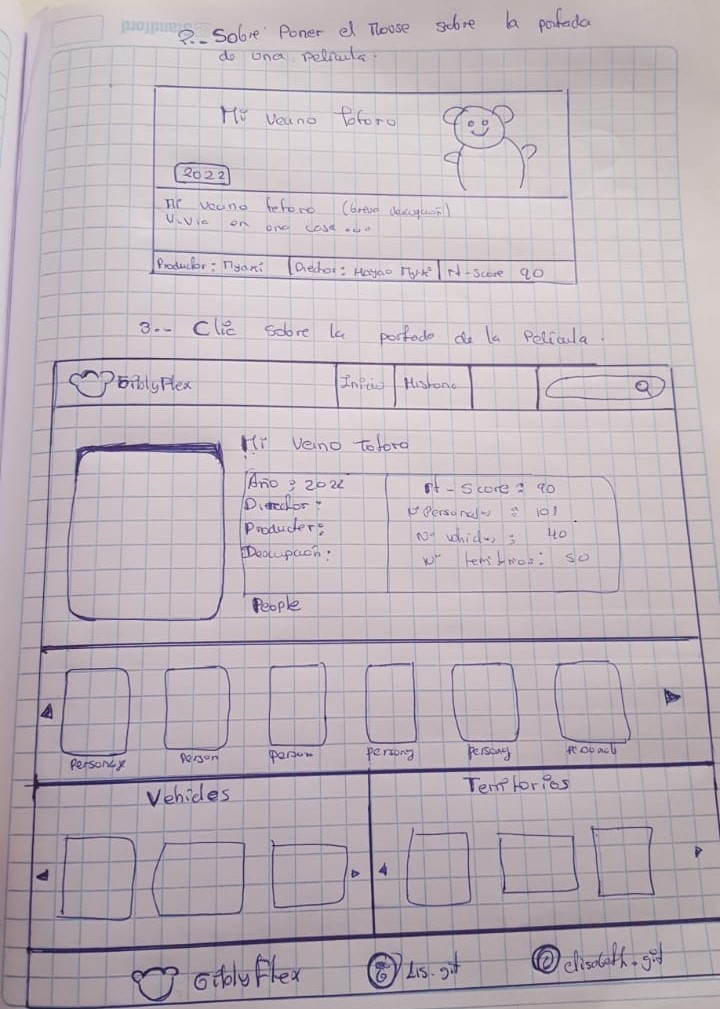 Standford
2.- Sobre Poner el Mouse sobre la portada
de una Pelicula.
Mi Vecino Totoro
2022
Mi vecino totoro (breve descripción)
Vivia en una casa ...
Productor: Miyaki | Director: Hayao Myki | rt-score 90
3.- Clic sobre la portada de la Pelicula.
GiblyFlex Inicio Historia
Mi Vecino totoro
Año : 2022 rt - Score : 90
Director: Nº Personajes : 101
Producter: Nº vehicles : 40
Descripción: Nº territorios: 50
People
Personaje Person Person Persong Persong Personaje
Vehicles Territorios
GiblyFlex Lis.git elisabeth.git